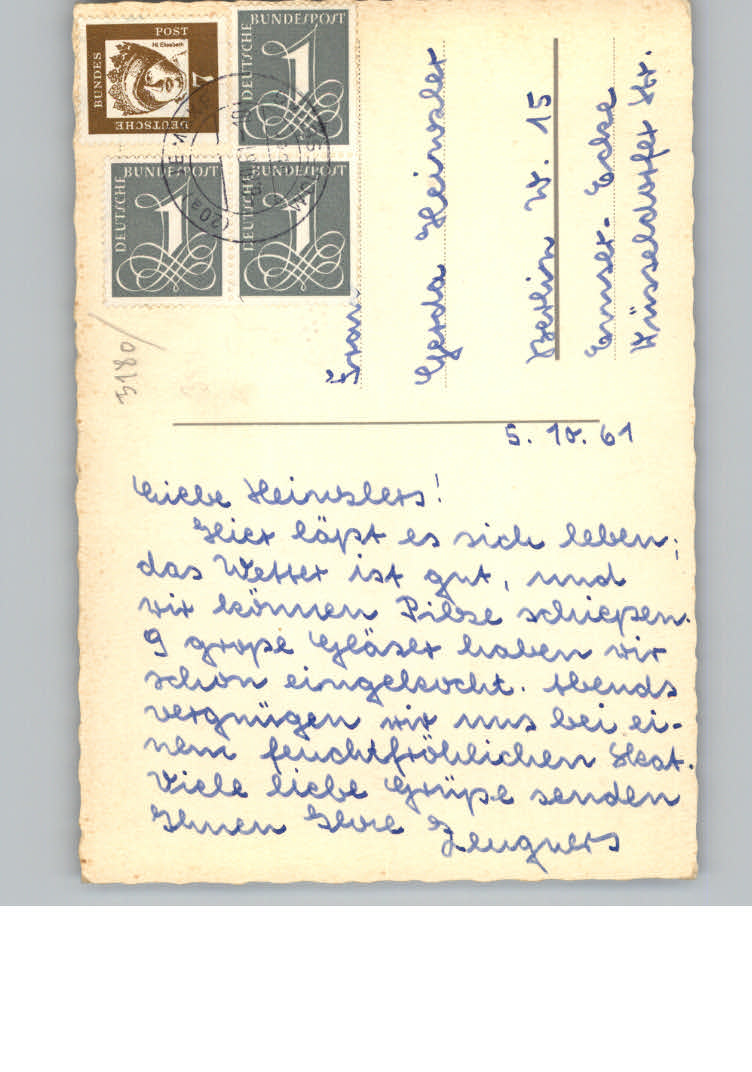 5. 10. 61
Liebe Heinzlers!
Hier läßt es sich leben;
das Wetter ist gut, und
wir können Pilze schießen.
9 große Gläser haben wir
schon eingekocht. Abends
vergnügen wir uns bei ei-
nem feuchtfröhlichen Skat.
Viele liebe Grüße senden
Ihnen Ihre Zeugners
Frau
Gerda Heinzler
Berlin W. 15
Emser- Ecke
Düsseldorfer Str.
DEUTSCHE BUNDESPOST
7
Hl. Elisabeth
DEUTSCHE BUNDESPOST
1
DEUTSCHE BUNDESPOST
1
DEUTSCHE BUNDESPOST
1
(20a)
3180/